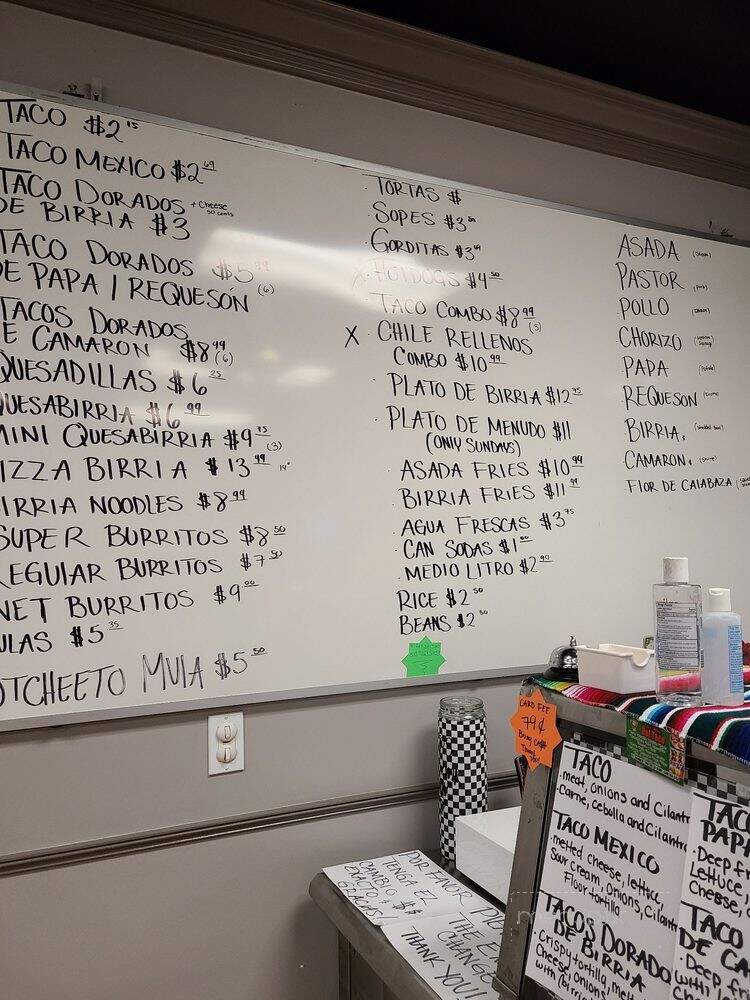 TACO $2 15
TACO MEXICO $2 69
TACO DORADOS + Cheese
DE BIRRIA $3 50 cents
TACO DORADOS $5 99
DE PAPA / REQUESÓN (6)
TACOS DORADOS
E CAMARON $8 99 (6)
QUESADILLAS $6 25
QUESABIRRIA $6 99
MINI QUESABIRRIA $9 75 (3)
IZZA BIRRIA $13 99 14"
IRRIA NOODLES $8 99
SUPER BURRITOS $8 50
REGULAR BURRITOS $7 50
WET BURRITOS $9 00
ULAS $5 35
OTCHEETO MULA $5 50
· TORTAS $
· SOPES $3
· GORDITAS $3
X HOTDOGS $4 50
· TACO COMBO $8 99 (3)
X · CHILE RELLENOS
COMBO $10 99
· PLATO DE BIRRIA $12
· PLATO DE MENUDO $11
(ONLY SUNDAYS)
· ASADA FRIES $10 99
· BIRRIA FRIES $11 99
· AGUA FRESCAS $3 75
· CAN SODAS $1
· MEDIO LITRO $2
RICE $2 50
BEANS $2 50
ASADA (Steak)
PASTOR (Pork)
POLLO
CHORIZO
PAPA (Potato)
REQUESON
BIRRIA
CAMARON
FLOR DE CALABAZA
CARD FEE
79¢
Bring Cash
Thank You!
TACO
· meat, onions and Cilantr
· Carne, cebolla and Cilantr
TACO MEXICO
· melted cheese, lettuce,
Sour cream, onions, Cilant
Flour tortilla
TACOS DORADO
DE BIRRIA
· crispy tortilla, me
Cheese, onion
with (birri
TACO
PAPA
· Deep fr
Lettuce,
Cheese,
TACO
DE CA
· Deep fri
with
POR FAVOR
TENGA EL
CAMBIO $$
EXACTO
GRACIAS
THE E
CHANGE
THANK YOU!